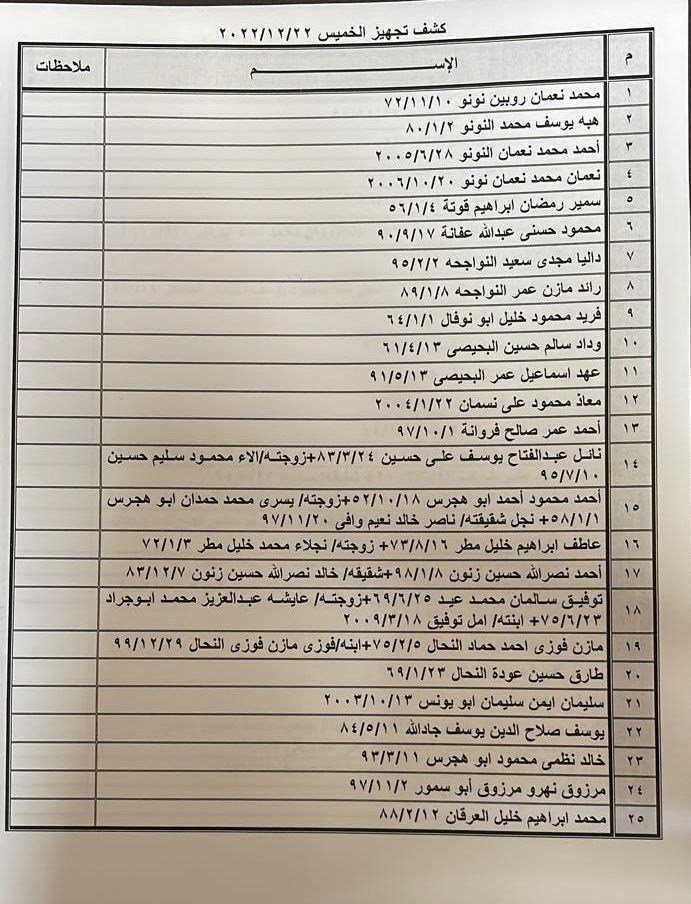 كشف تجهيز الخميس ٢٠٢٢/١٢/٢٢
م الإســـــــــــــــــــــم ملاحظات
١ محمد نعمان روبين نونو ٧٢/١١/١٠
٢ هبه يوسف محمد النونو ٨٠/١/٢
٣ أحمد محمد نعمان النونو ٢٠٠٥/٦/٢٨
٤ نعمان محمد نعمان نونو ٢٠٠٦/١٠/٢٠
٥ سمير رمضان ابراهيم قوتة ٥٦/١/٤
٦ محمود حسنى عبدالله عفانة ٩٠/٩/١٧
٧ داليا مجدى سعيد النواجحه ٩٥/٢/٢
٨ رائد مازن عمر النواجحه ٨٩/١/٨
٩ فريد محمود خليل ابو نوفال ٦٤/١/١
١٠ وداد سالم حسين البحيصى ٦١/٤/١٣
١١ عهد اسماعيل عمر البحيصى ٩١/٥/١٣
١٢ معاذ محمود على نسمان ٢٠٠٤/١/٢٢
١٣ أحمد عمر صالح فروانة ٩٧/١٠/١
١٤ نائل عبدالفتاح يوسف على حسين ٨٣/٣/٢٤+زوجته/الاء محمود سليم حسين
٩٥/٧/١٠
١٥ أحمد محمود أحمد ابو هجرس ٥٢/١٠/١٨+زوجته/ يسرى محمد حمدان ابو هجرس
٥٨/١/١+ نجل شقيقته/ ناصر خالد نعيم وافى ٩٧/١١/٢٠
١٦ عاطف ابراهيم خليل مطر ٧٣/٨/١٦+ زوجته/ نجلاء محمد خليل مطر ٧٢/١/٣
١٧ أحمد نصرالله حسين زنون ٩٨/١/٨+شقيقه/ خالد نصرالله حسين زنون ٨٣/١٢/٧
١٨ توفيق سالمان محمد عيد ٦٩/٦/٢٥+زوجته/ عايشه عبدالعزيز محمد ابوجراد
٧٥/٦/٢٣+ ابنته/ امل توفيق ٢٠٠٩/٣/١٨
١٩ مازن فوزى احمد حماد النحال ٧٥/٢/٥+ابنه/فوزى مازن فوزى النحال ٩٩/١٢/٢٩
٢٠ طارق حسين عودة النحال ٦٩/١/٢٣
٢١ سليمان ايمن سليمان ابو يونس ٢٠٠٣/١٠/١٣
٢٢ يوسف صلاح الدين يوسف جادالله ٨٤/٥/١١
٢٣ خالد نظمى محمود ابو هجرس ٩٣/٣/١١
٢٤ مرزوق نهرو مرزوق أبو سمور ٩٧/١١/٢
٢٥ محمد ابراهيم خليل العرقان ٨٨/٢/١٢